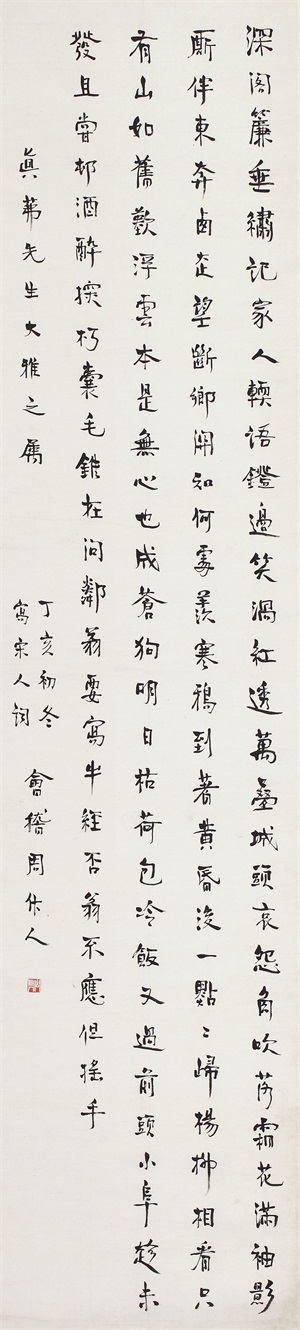 深閣簾垂繡記家人輭語鐙邊笑渦紅透萬疊城頭哀怨角吹落霜花滿袖影
厮伴東奔西走望斷鄉關知何處羨寒鴉到著黃昏後一點〻歸楊柳相看只
有山如舊歎浮雲本是無心也成蒼狗明日枯荷包冷飯又過前頭小阜趁未
發且嘗邨酒醉探朽囊毛錐在問鄰翁要寫牛經否翁不應但搖手
眞茀先生大雅之属
丁亥初冬
寫宋人詞
會稽周作人